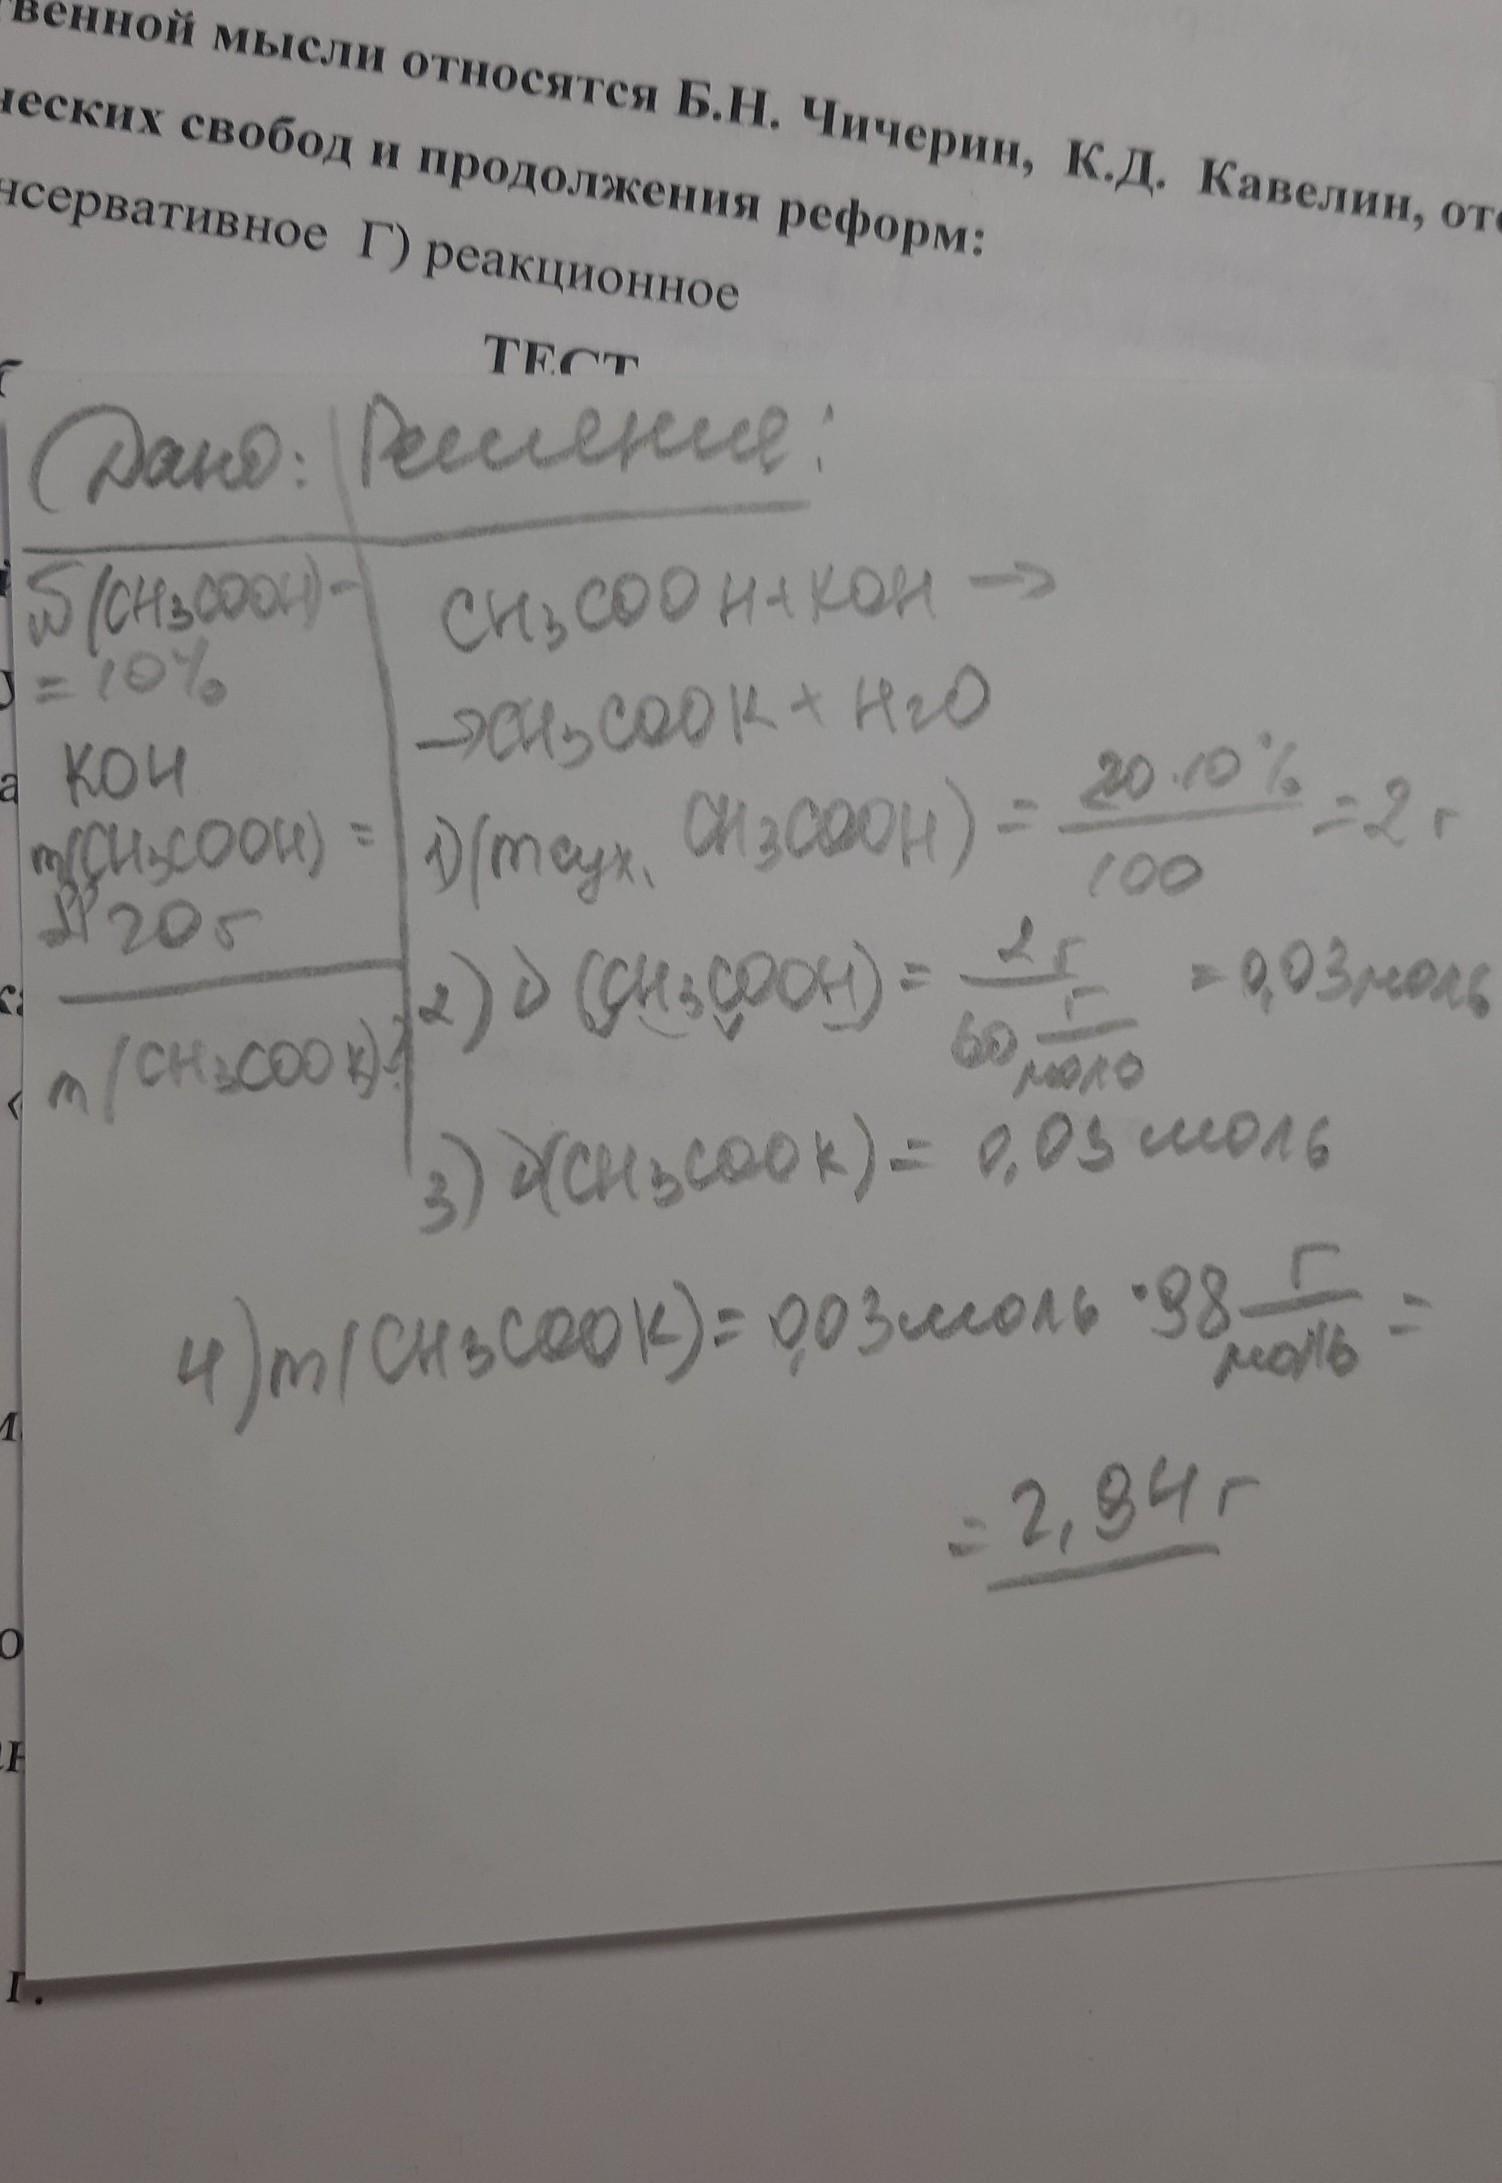 твенной мысли относятся Б.Н. Чичерин, К.Д. Кавелин, отс
ческих свобод и продолжения реформ:
нсервативное Г) реакционное
ТЕСТ
Дано: Решение:
W(CH3COOH)-
= 10%
KOH
m(CH3COOH) =
p-p 20 г
m(CH3COOK)-?
CH3COOH+KOH →
→CH3COOK + H2O
1) (m сух. CH3COOH) = 20·10% / 100 = 2 г
2) ν (CH3COOH) = 2 г / 60 г/моль = 0,03 моль
3) ν(CH3COOK) = 0,03 моль
4) m(CH3COOK) = 0,03 моль · 98 г/моль =
= 2,94 г
г.